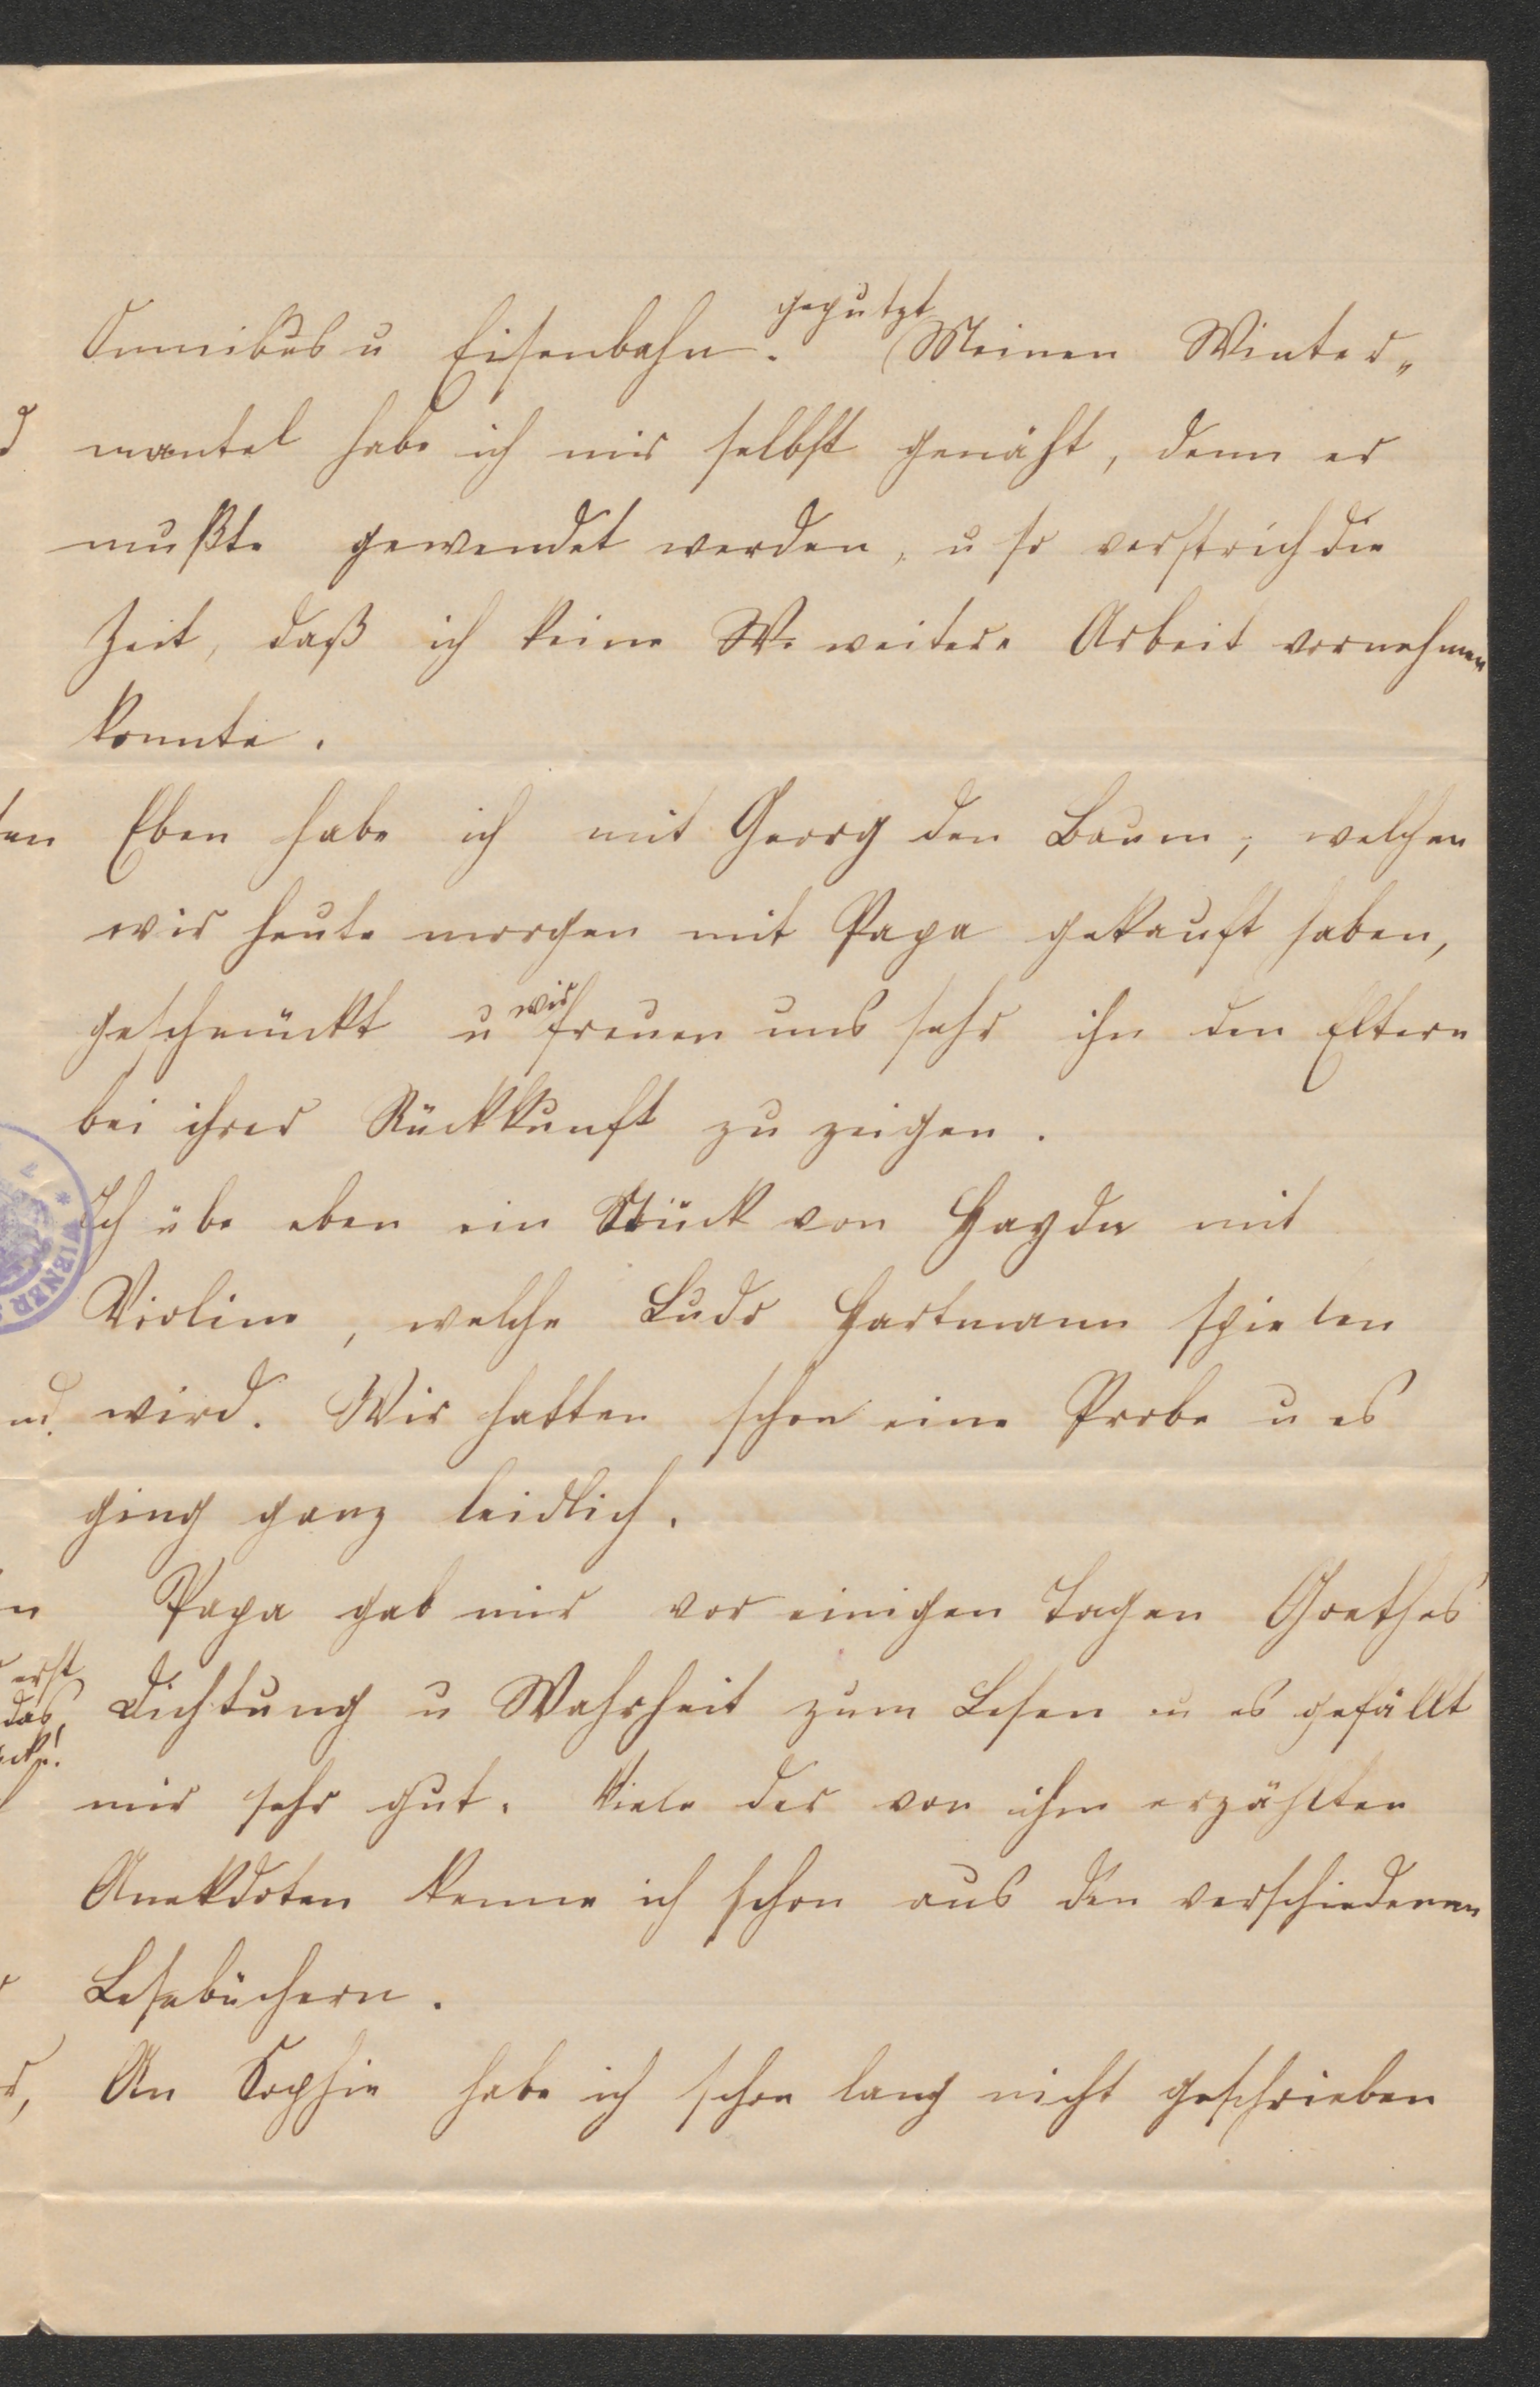 Omnibus u Eisenbahn. geputzt Meinen Winter„
mantel habe ich mir selbst genäht, denn er
mußte gewendet werden, u so verstrich die
Zeit, daß ich keine W. weitere Arbeit vornehmen
konnte.
Eben habe ich mit Georg den Baum, welchen
wir heute morgen mit Papa gekauft haben,
geschmückt u wir freuen uns sehr ihn den Eltern
bei ihrer Rückkunft zu zeigen.
Ich übe eben ein Stück von Haydn mit
Violine, welche Ludo Hartmann spielen
wird. Wir hatten schon eine Probe u es
ging ganz leidlich.
Papa gab mir vor einigen Tagen Goethes
Dichtung u Wahrheit zum Lesen u es gefällt
mir sehr gut. Viele der von ihm erzählten
Anekdoten kenne ich schon aus den verschiedenen
Lesebüchern.
An Sophie habe ich schon lang nicht geschrieben
erst
das
WIENER